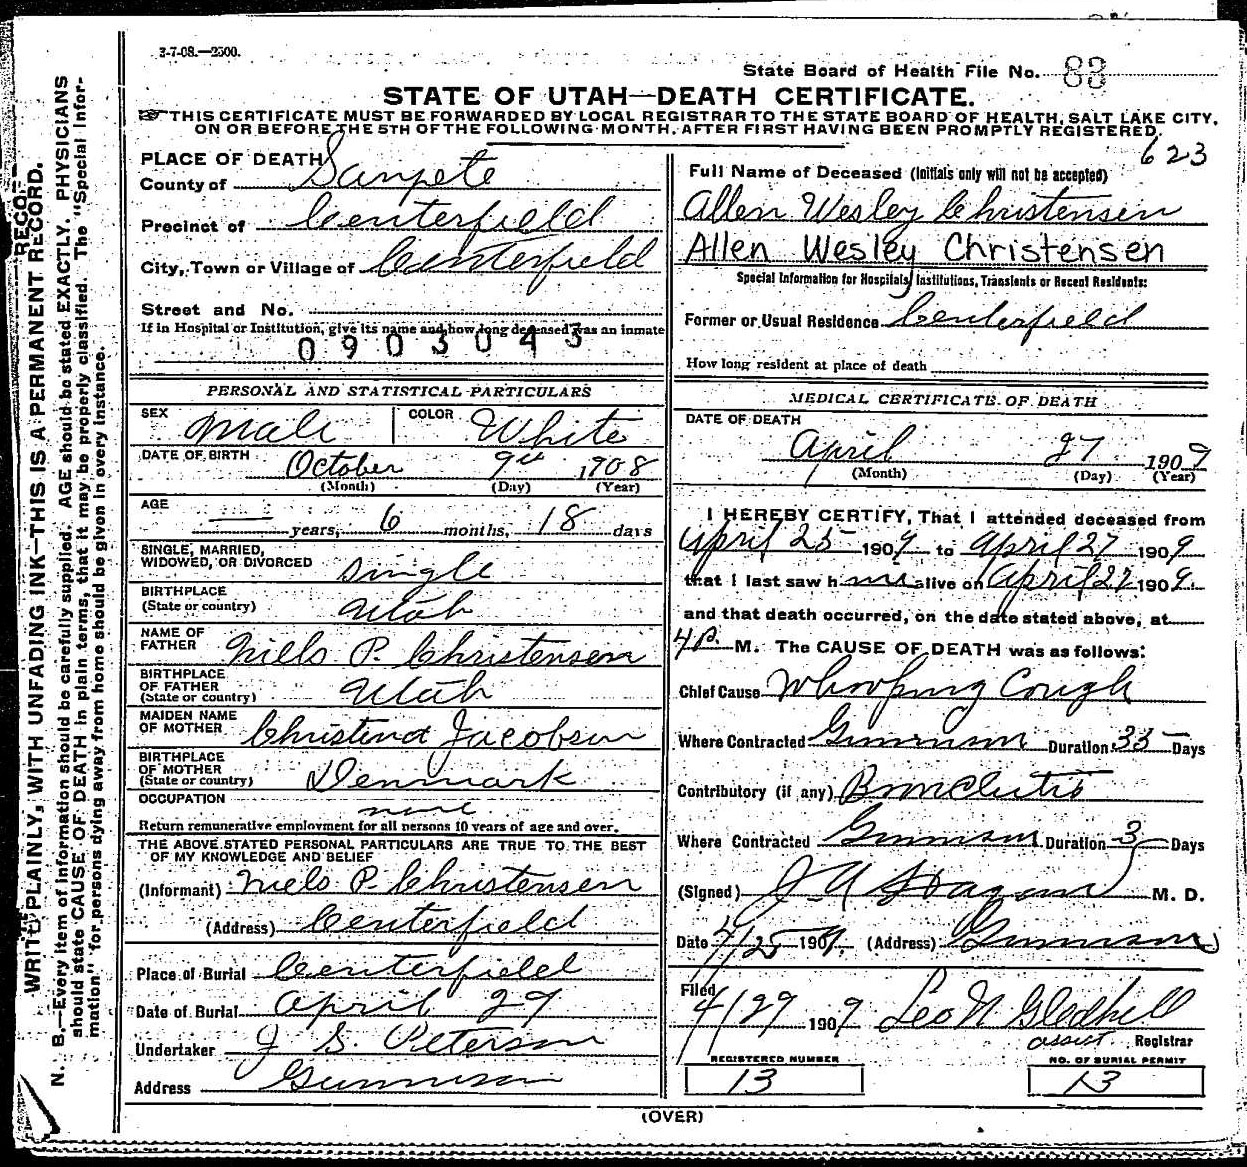 3-7-08.—2500.
State Board of Health File No. 83
STATE OF UTAH—DEATH CERTIFICATE.
THIS CERTIFICATE MUST BE FORWARDED BY LOCAL REGISTRAR TO THE STATE BOARD OF HEALTH, SALT LAKE CITY,
ON OR BEFORE THE 5TH OF THE FOLLOWING MONTH, AFTER FIRST HAVING BEEN PROMPTLY REGISTERED.
623
PLACE OF DEATH
County of Sanpete
Precinct of Centerfield
City, Town or Village of Centerfield
Street and No.
If in Hospital or Institution, give its name and how long deceased was an inmate
0903043
PERSONAL AND STATISTICAL PARTICULARS
SEX Male COLOR White
DATE OF BIRTH October 9th 1908
(Month) (Day) (Year)
AGE — years, 6 months, 18 days
SINGLE, MARRIED,
WIDOWED, OR DIVORCED single
BIRTHPLACE
(State or country) Utah
NAME OF
FATHER Niels P. Christensen
BIRTHPLACE
OF FATHER
(State or country) Utah
MAIDEN NAME
OF MOTHER Christena Jacobson
BIRTHPLACE
OF MOTHER
(State or country) Denmark
OCCUPATION none
Return remunerative employment for all persons 10 years of age and over.
THE ABOVE STATED PERSONAL PARTICULARS ARE TRUE TO THE BEST
OF MY KNOWLEDGE AND BELIEF
(Informant) Niels P. Christensen
(Address) Centerfield
Place of Burial Centerfield
Date of Burial April 29
Undertaker J S. Peterson
Address Gunnison
Full Name of Deceased (Initials only will not be accepted)
Allen Wesley Christensen
Allen Wesley Christensen
Special Information for Hospitals, Institutions, Transients or Recent Residents:
Former or Usual Residence Centerfield
How long resident at place of death
MEDICAL CERTIFICATE OF DEATH
DATE OF DEATH
April 27 1909
(Month) (Day) (Year)
I HEREBY CERTIFY, That I attended deceased from
April 25 1909 to April 27 1909
that I last saw him alive on April 27 1909.
and that death occurred, on the date stated above, at
4 P. M. The CAUSE OF DEATH was as follows:
Chief Cause Whooping Cough
Where Contracted Gunnison Duration 35 Days
Contributory (if any) Bronchitis
Where Contracted Gunnison Duration 3 Days
(Signed) J. A Hagan M. D.
Date 4/25 1909. (Address) Gunnison
Filed
4/29 1909 Leo N Gledhill
assist. Registrar
REGISTERED NUMBER
13
NO. OF BURIAL PERMIT
13
(OVER)
WRITE PLAINLY, WITH UNFADING INK—THIS IS A PERMANENT RECORD.
N. B.—Every item of information should be carefully supplied. AGE should be stated EXACTLY. PHYSICIANS
should state CAUSE OF DEATH in plain terms, that it may be properly classified. The "Special Infor-
mation" for persons dying away from home should be given in every instance.